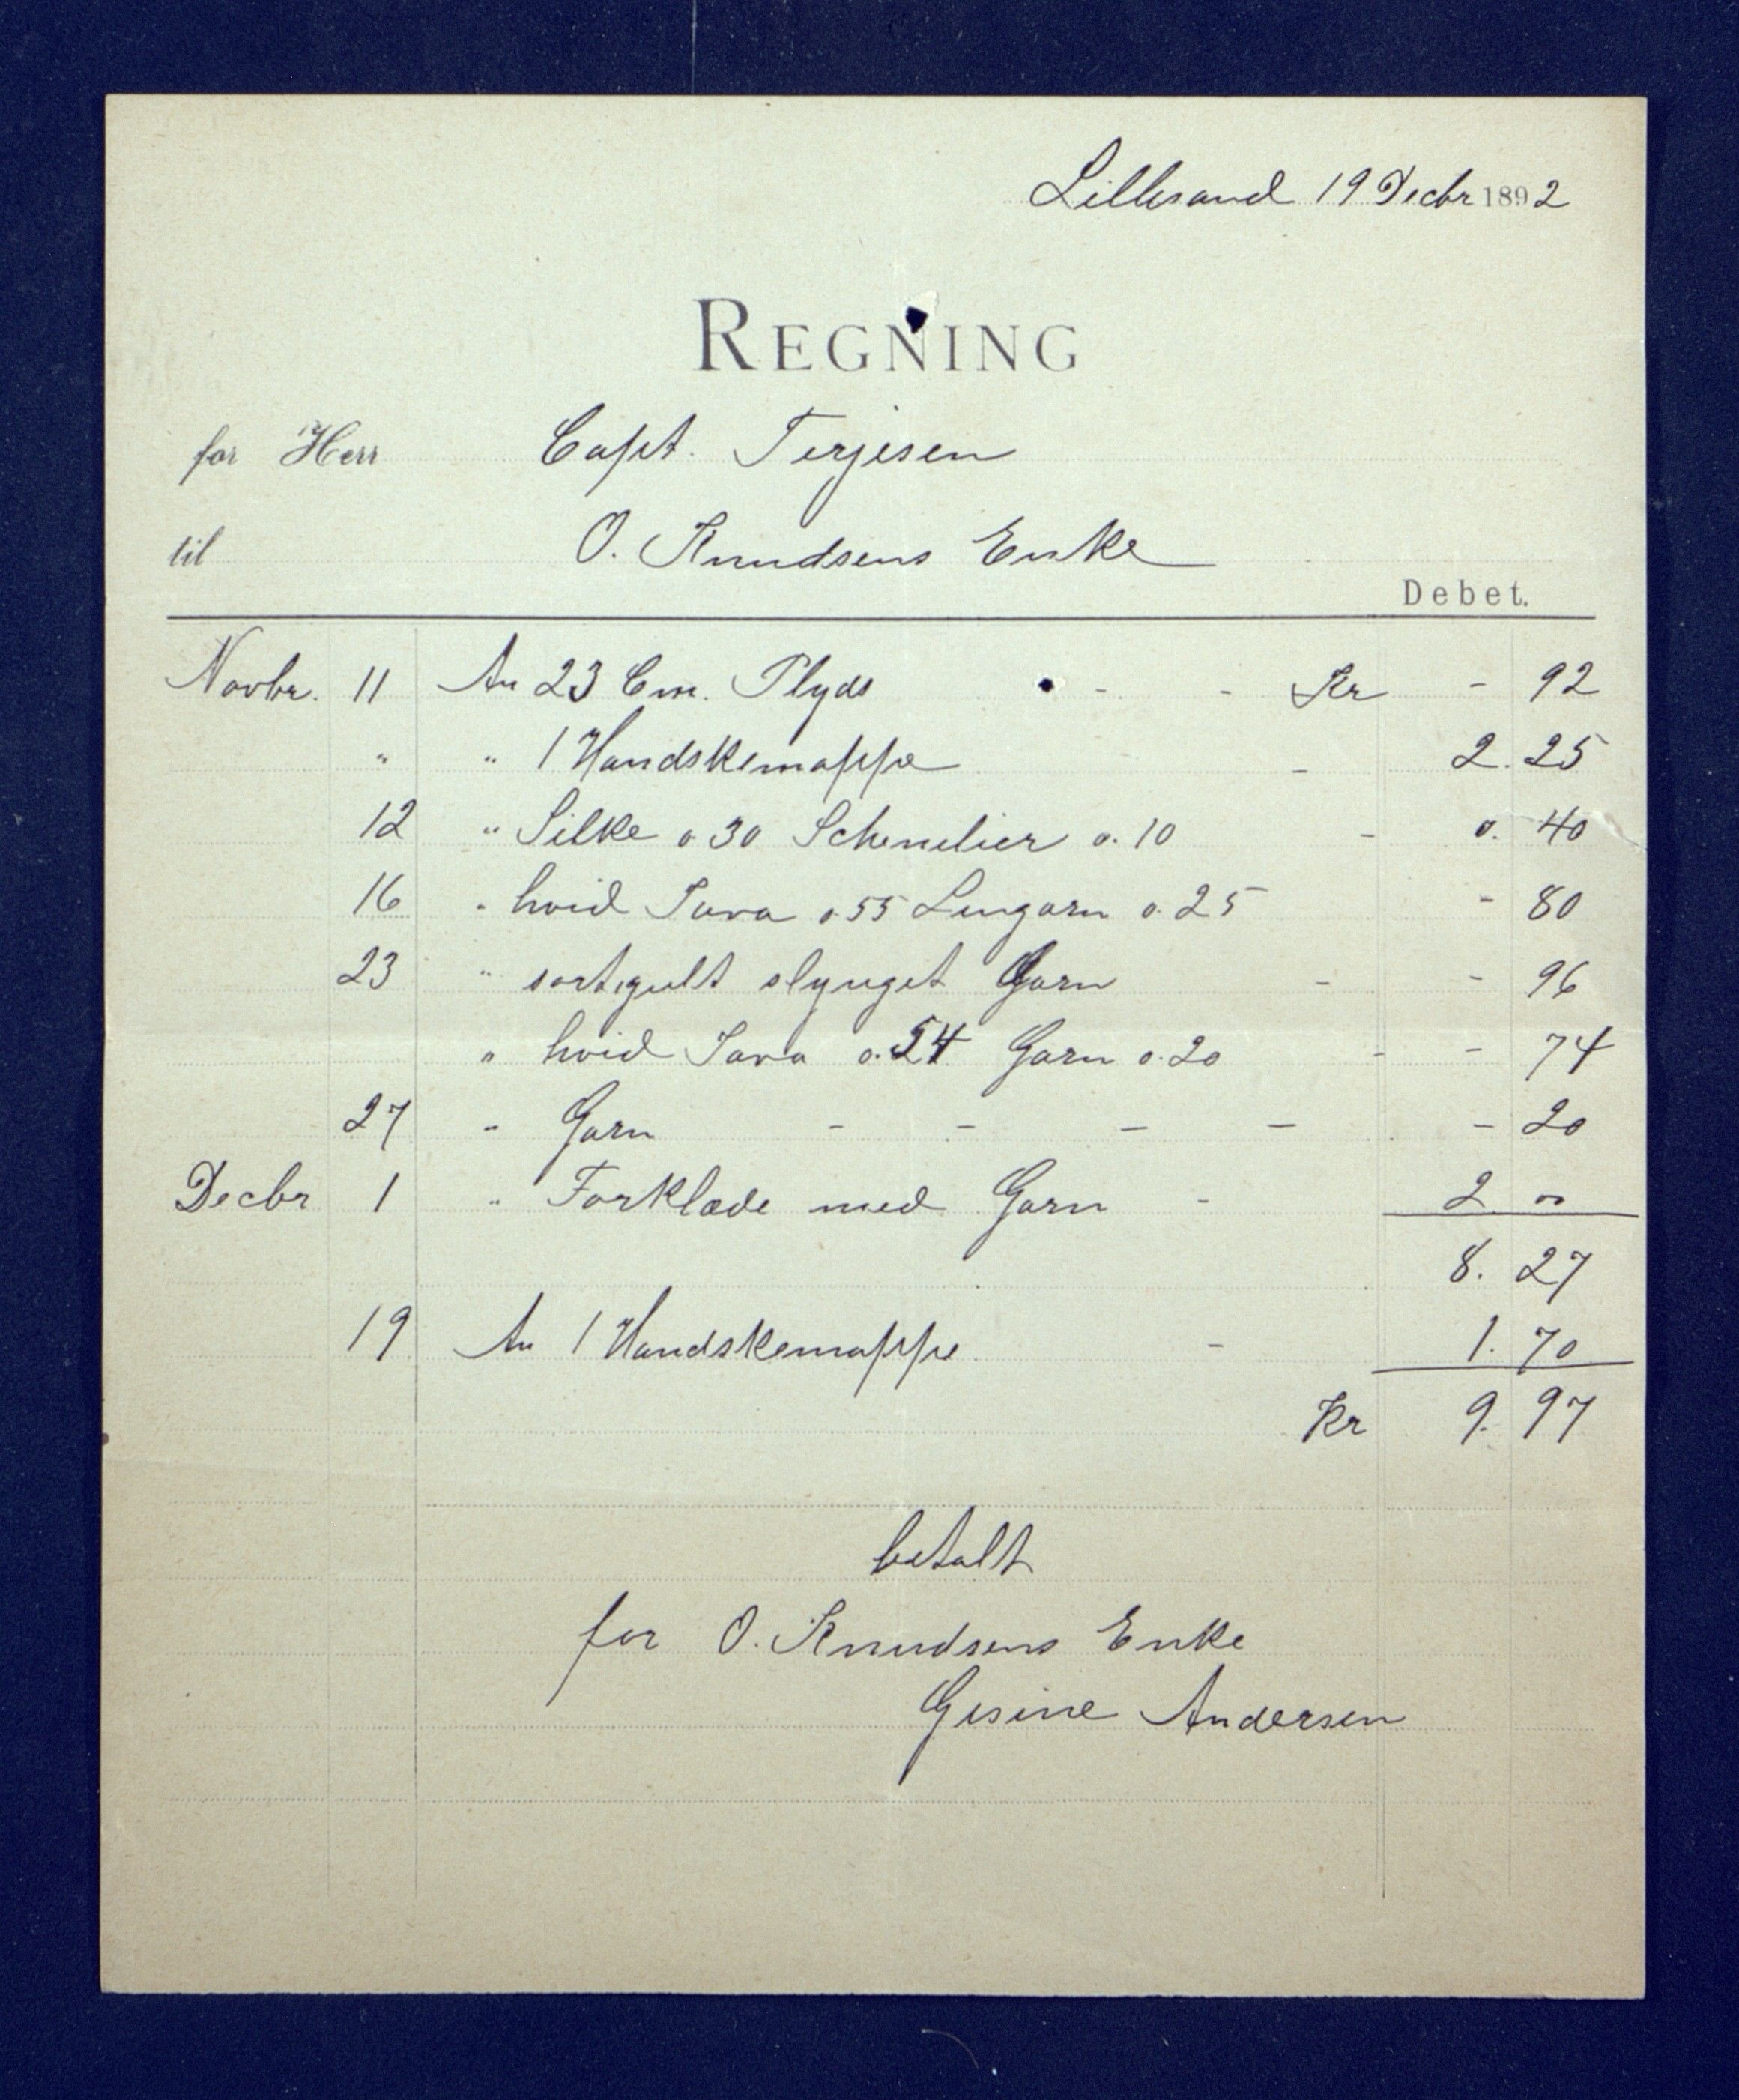 Lillesand 19 Decbr 1892
REGNING
for Herr Capt. Terjesen
til O. Knudsens Enke
Debet.
Novbr. 11 An 23 Cm. Plyds - - Kr - 92
" " 1 Handskemappe - 2. 25
12 " Silke o 30 Schenelier o. 10 - o. 40
16 " hvid Java o. 55 Lingarn o. 25 - 80
23 " sort, gult slynget Garn - - 96
" hvid Java o. 54 Garn o. 20 - - 74
27 " Garn - - - - - 20
Decbr 1 " Forklæde med Garn - 2 "
8. 27
19 An 1 Handskemappe - 1. 70
Kr 9. 97
betalt
for O. Knudsens Enke
Gesine Andersen